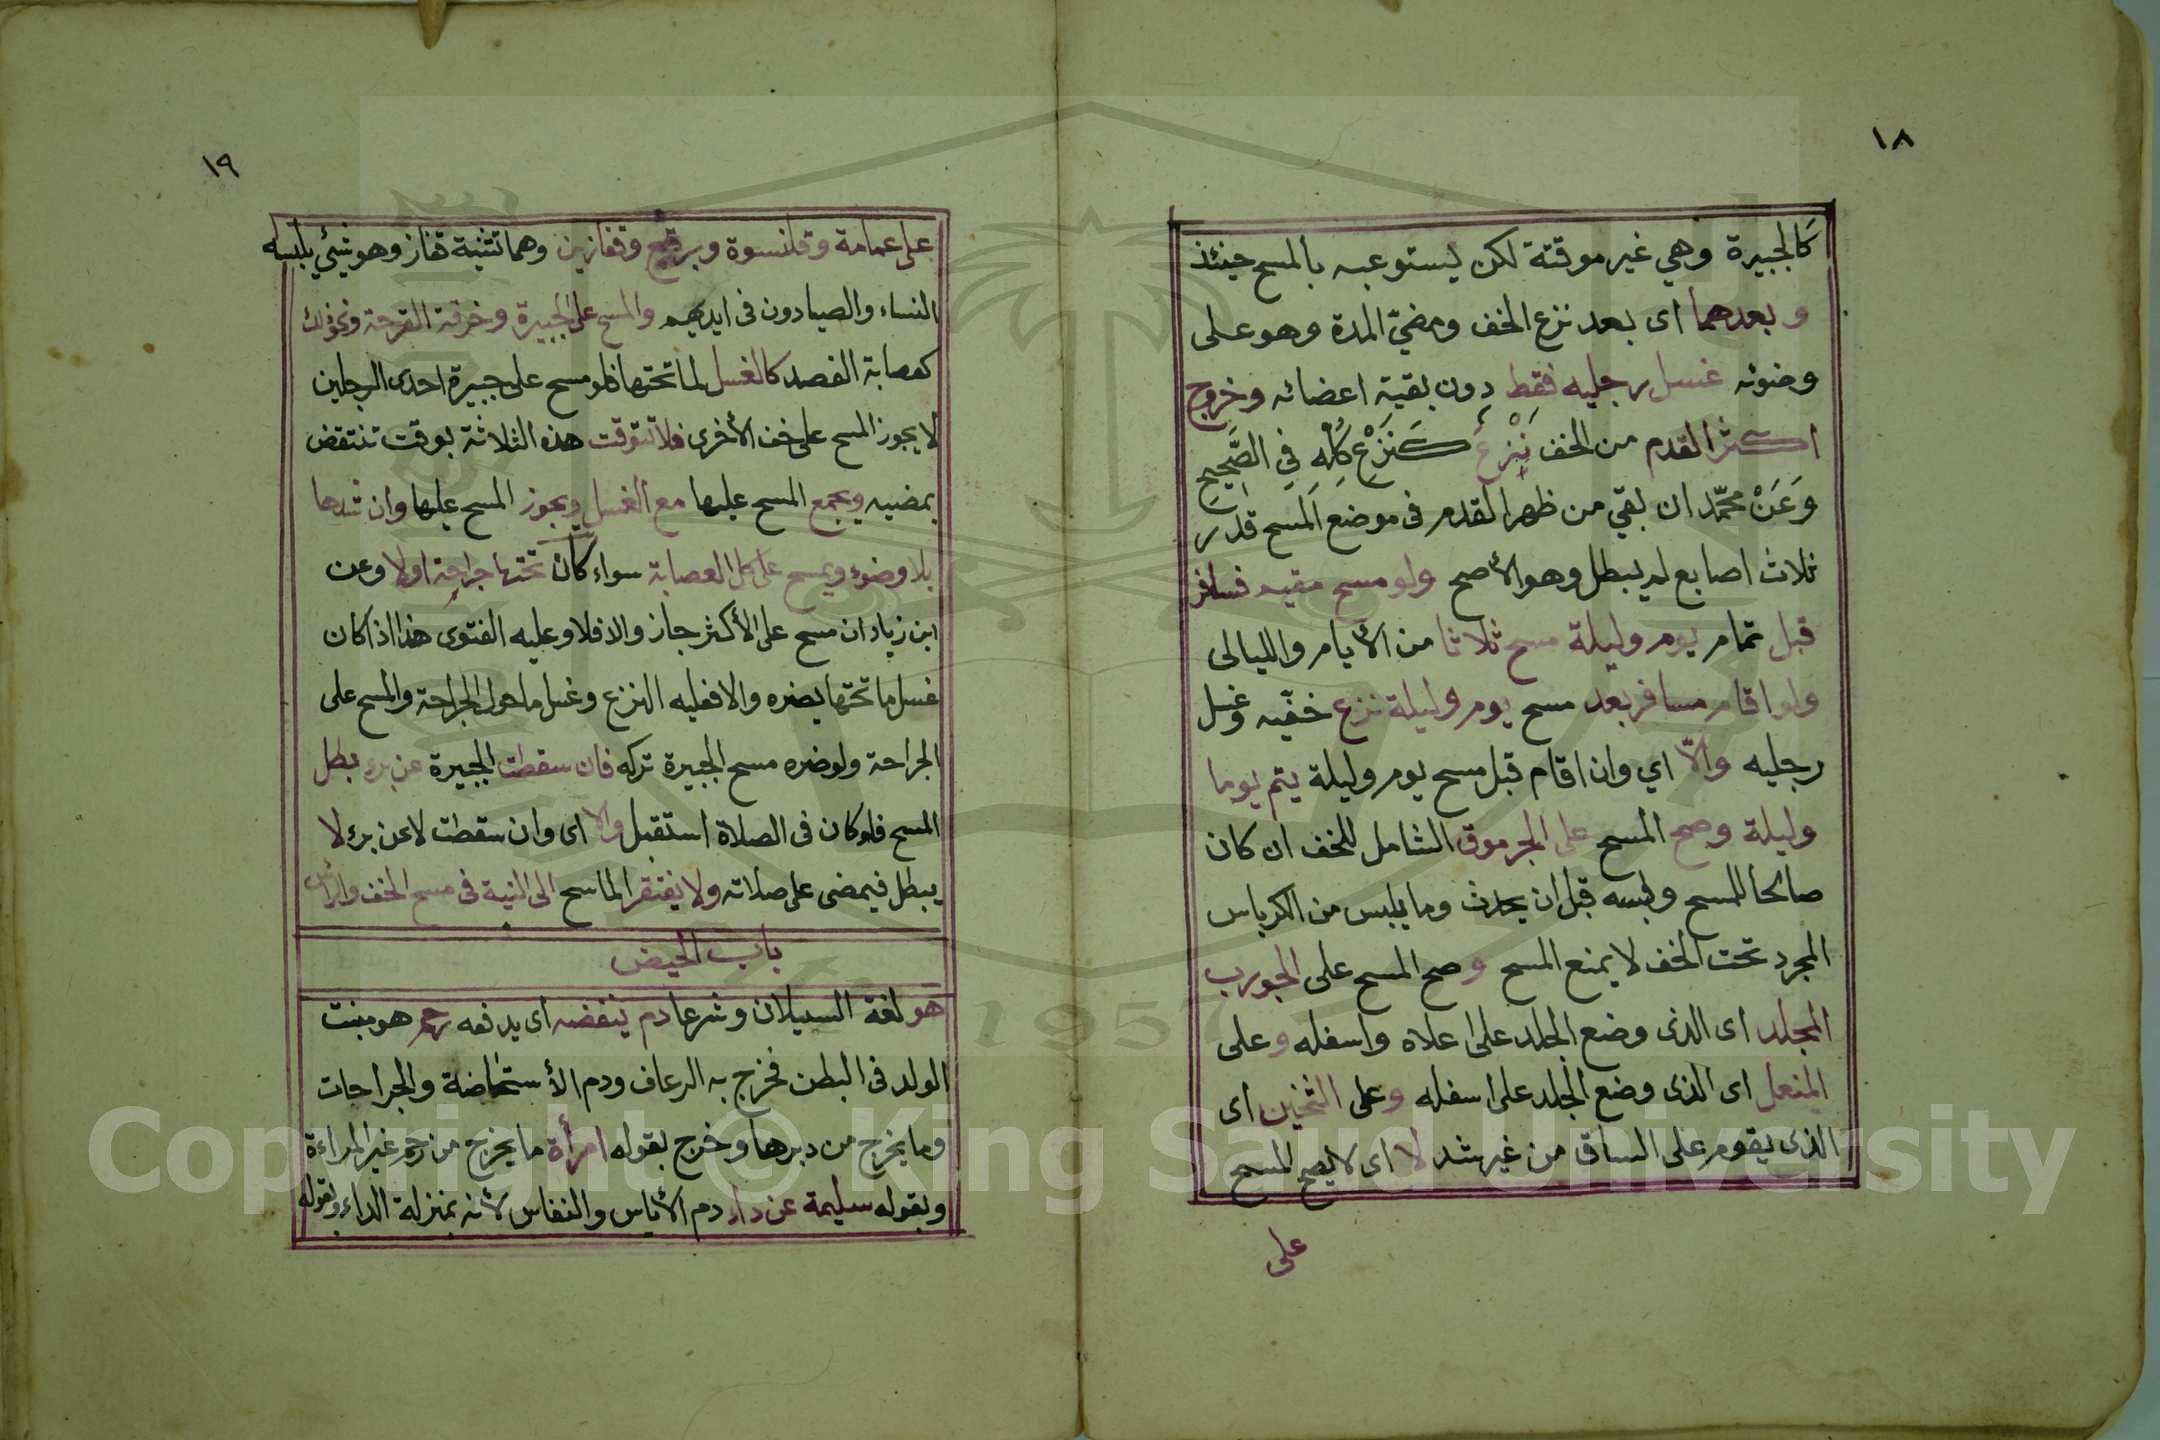 ١٨
كالجبيرة وهي غير موقتة لكن يستوعبه بالمسح حينئذ
وبعدهما اى بعد نزع الخف ومضيّ المدة وهو على
وضوئه غسل رجليه فقط دون بقية اعضائه وخروج
اكثر القدم من الخف نَزْعٌ كَنَزْعِ كُلِّهِ فِي الصَّحِيحِ
وَعَنْ محمّد ان بقي من ظهر القدم فى موضع المسح قدر
ثلاث اصابع لم يبطل وهو الأصح ولو مسح مقيم فسافر
قبل تمام يوم وليلة مسح ثلاثا من الأيام والليالى
ولو اقام مسافر بعد مسح يوم وليلة نزع خفّيه وغسل
رجليه والّا اي وان اقام قبل مسح يوم وليلة يتم يوما
وليلة وصح المسح على الجرموق الشامل للخف ان كان
صالحا للمسح ولبسه قبل ان يحدث وما يلبس من الكرباس
المجرد تحت الخف لا يمنع المسح وصح المسح على الجورب
المجلد اى الذى وضع الجلد على اعلاه واسفله وعلى
المنعل اى الذى وضع الجلد على اسفله وعلى الثخين اى
الذى يقوم على الساق من غير شد لا اى لا يصح المسح
على
١٩
على عمامة وقلنسوة وبرقع وقفازين وهما تثنية قفاز وهو شيئ يلبسه
النساء والصيادون فى ايديهم والمسح على الجبيرة وخرقة القرحة ونحو ذلك
كعصابة الفصد كالغسل لما تحتها فلو مسح على جبيرة احدى الرجلين
لا يجوز المسح على خف الأخرى فلا تتوقت هذه الثلاثة بوقت تنتقض
بمضيه ويجمع المسح عليها مع الغسل ويجوز المسح عليها وان شدها
بلا وضوء ويمسح على كل العصابة سواء كان تحتها جراحة اولا وعن
ابن زياد ان مسح على الأكثر جاز والا فلا وعليه الفتوى هذا اذا كان
غسل ما تحتها يضره والا فعليه النزع وغسل ما حول الجراحة والمسح على
الجراحة ولو ضره مسح الجبيرة تركه فان سقطت الجبيرة عن برء بطل
المسح فلو كان فى الصلاة استقبل والا اى وان سقطت لا عن برء لا
يبطل فيمضى على صلاته ولا يفتقر الماسح الى النية فى مسح الخف والرأس
باب الحيض
هو لغة السيلان وشرعا دم ينفضه اى يدفعه رحم هو منبت
الولد فى البطن فخرج به الرعاف ودم الأستحاضة والجراحات
وما يخرج من دبرها وخرج بقوله امرأة ما يخرج من رحم غير المراءة
وبقوله سليمة عن داء دم الأياس والنفاس لأنه بمنزلة الداء وبقوله
1957
Copyright © King Saud University